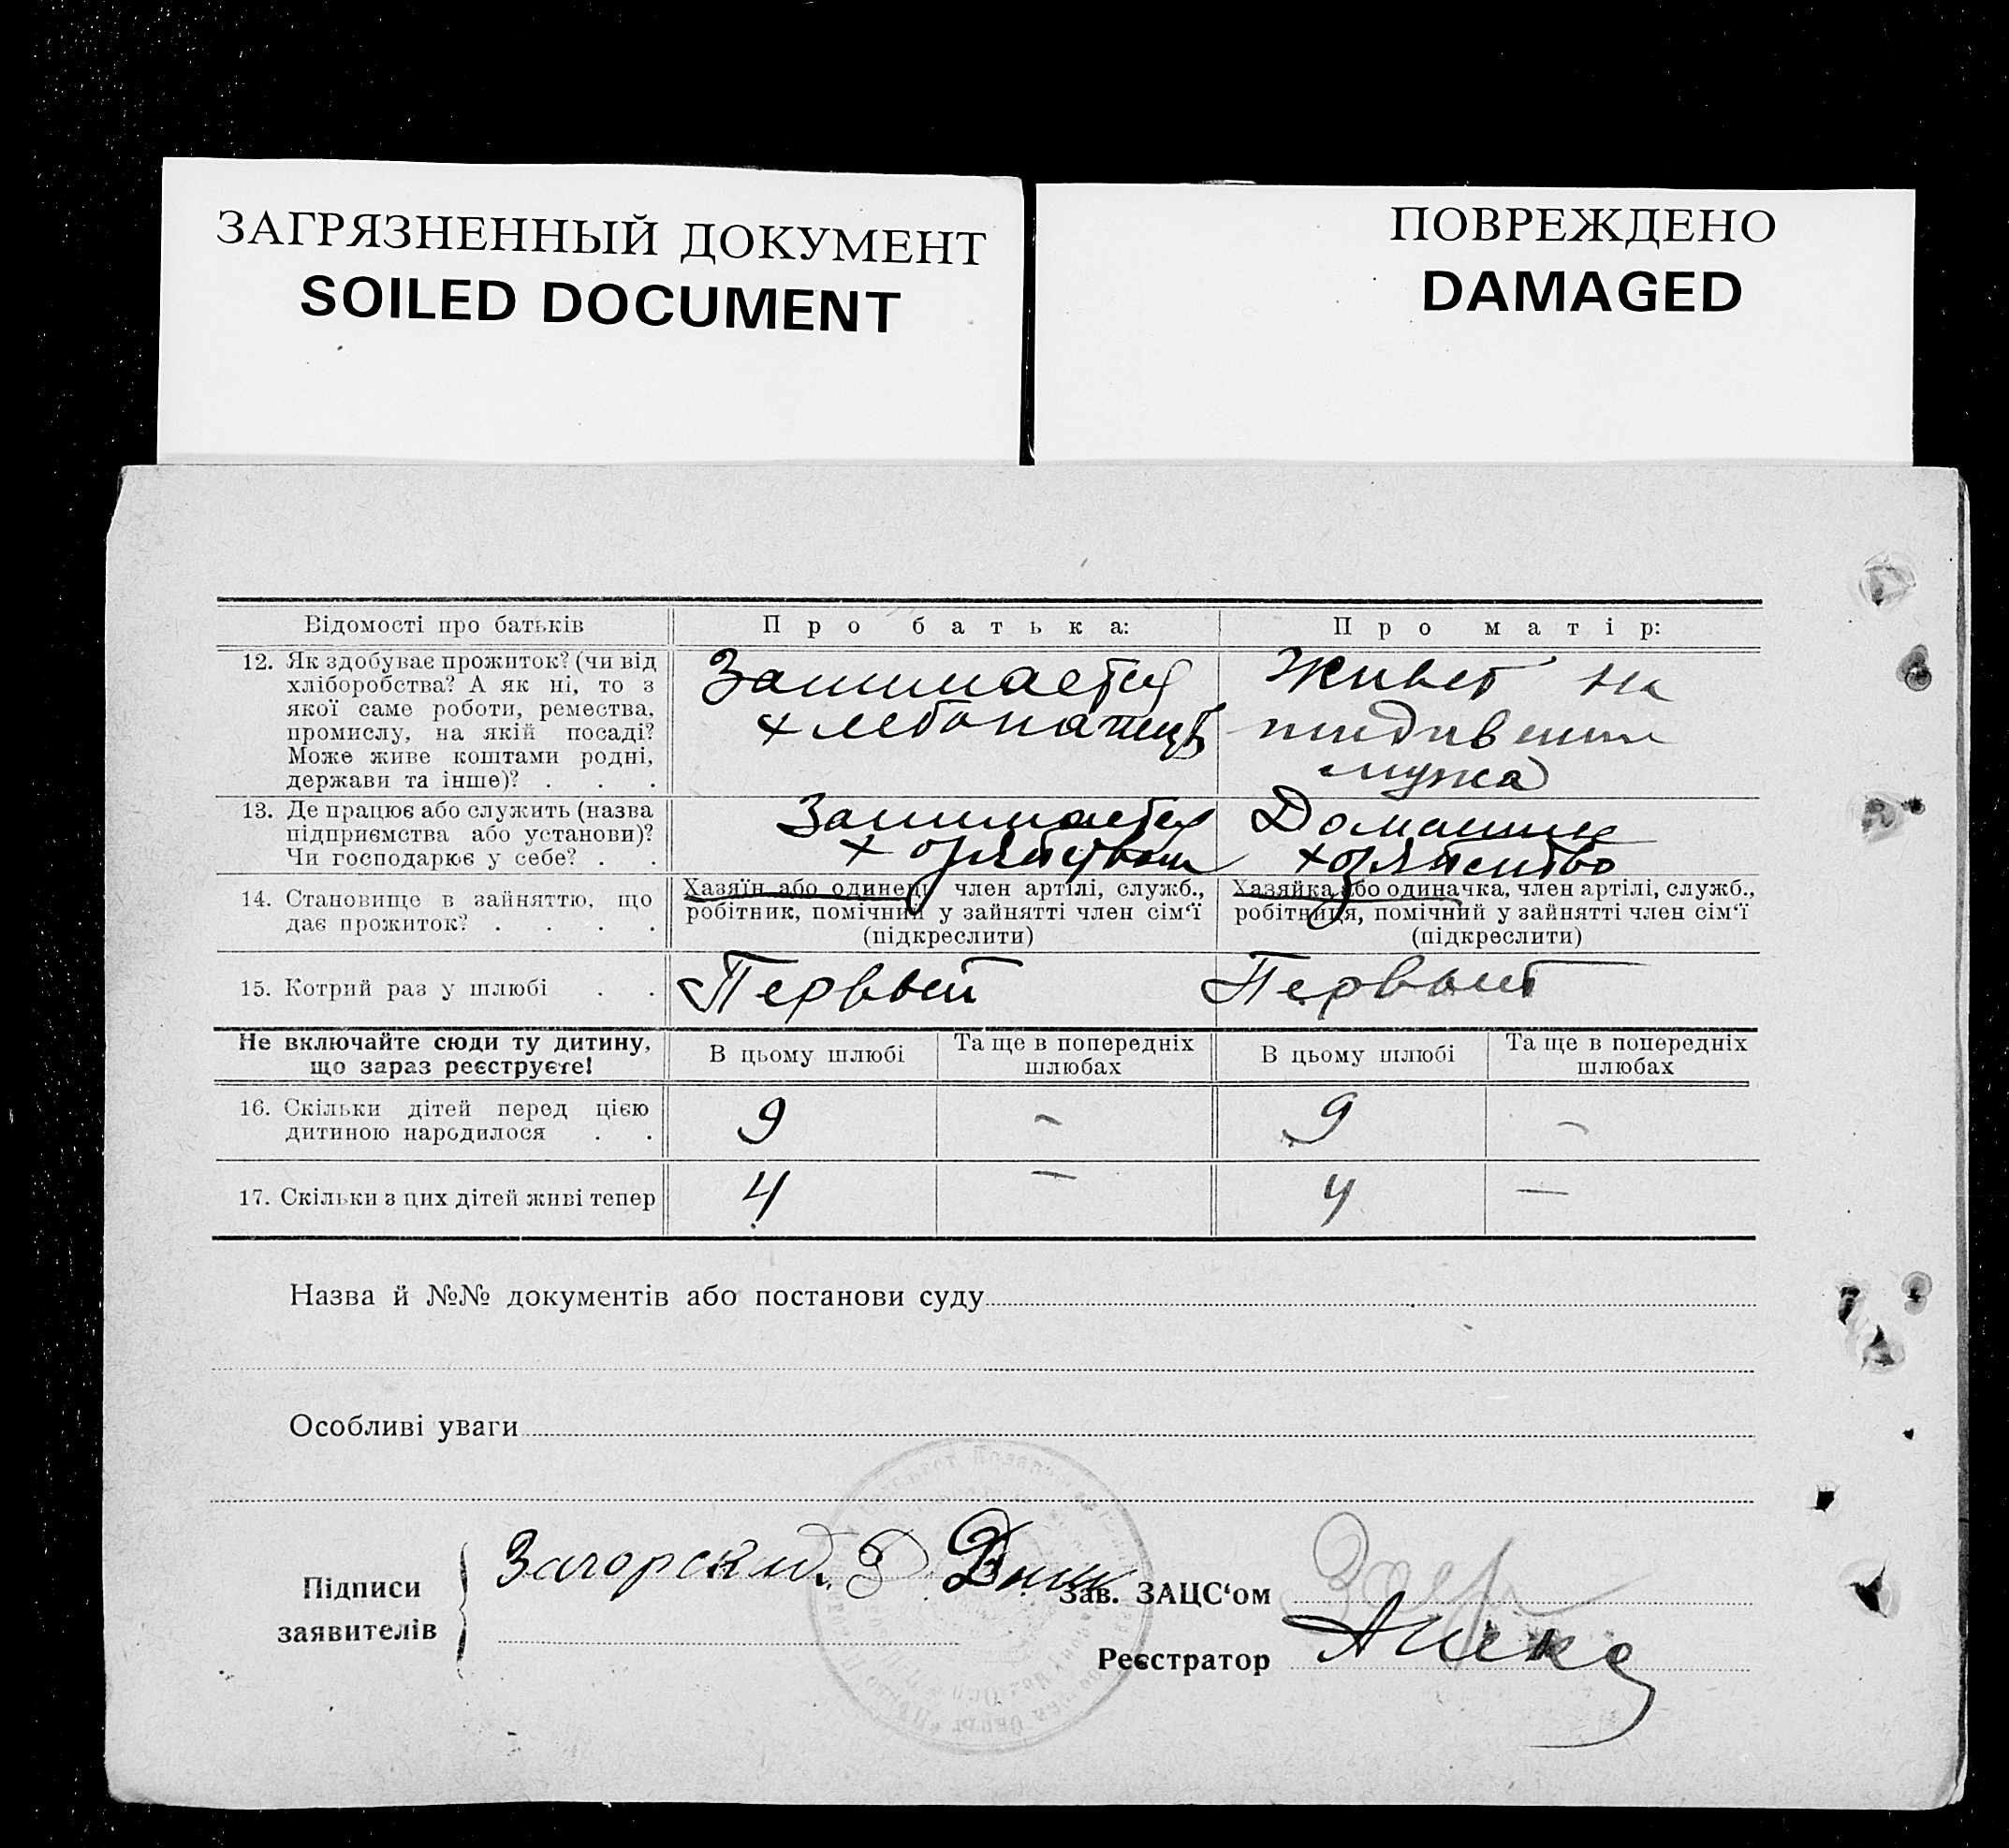 ЗАГРЯЗНЕННЫЙ ДОКУМЕНТ
SOILED DOCUMENT
ПОВРЕЖДЕНО
DAMAGED
Відомості про батьків
Про батька:
Про матір:
12. Як здобуває прожиток? (чи від
хліборобства? А як ні, то з
якої саме роботи, ремества,
промислу, на якій посаді?
Може живе коштами родні,
держави та інше)? . . .
Занимается
хлебопашцв
Живет на
иждивении
мужа
13. Де працює або служить (назва
підприємства або установи)?
Чи господарює у себе? . .
Занимается
хозяйством
Домашнее
хозяйство
14. Становище в зайняттю, що
дає прожиток? . . . .
Хазяїн або одинець, член артілі, служб.,
робітник, помічний у зайнятті член сім‘ї
(підкреслити)
Хазяйка або одиначка, член артілі, служб.,
робітниця, помічний у зайнятті член сім‘ї
(підкреслити)
15. Котрий раз у шлюбі . .
Первый
Первый
Не включайте сюди ту дитину,
що зараз реєструєте!
В цьому шлюбі
Та ще в попередніх
шлюбах
В цьому шлюбі
Та ще в попередніх
шлюбах
16. Скільки дітей перед цією
дитиною народилося . .
9
-
9
-
17. Скільки з цих дітей живі тепер
4
-
4
-
Назва й №№ документів або постанови суду
Особливі уваги
Підписи
заявителів
Загорский
Зав. ЗАЦС‘ом
Реєстратор